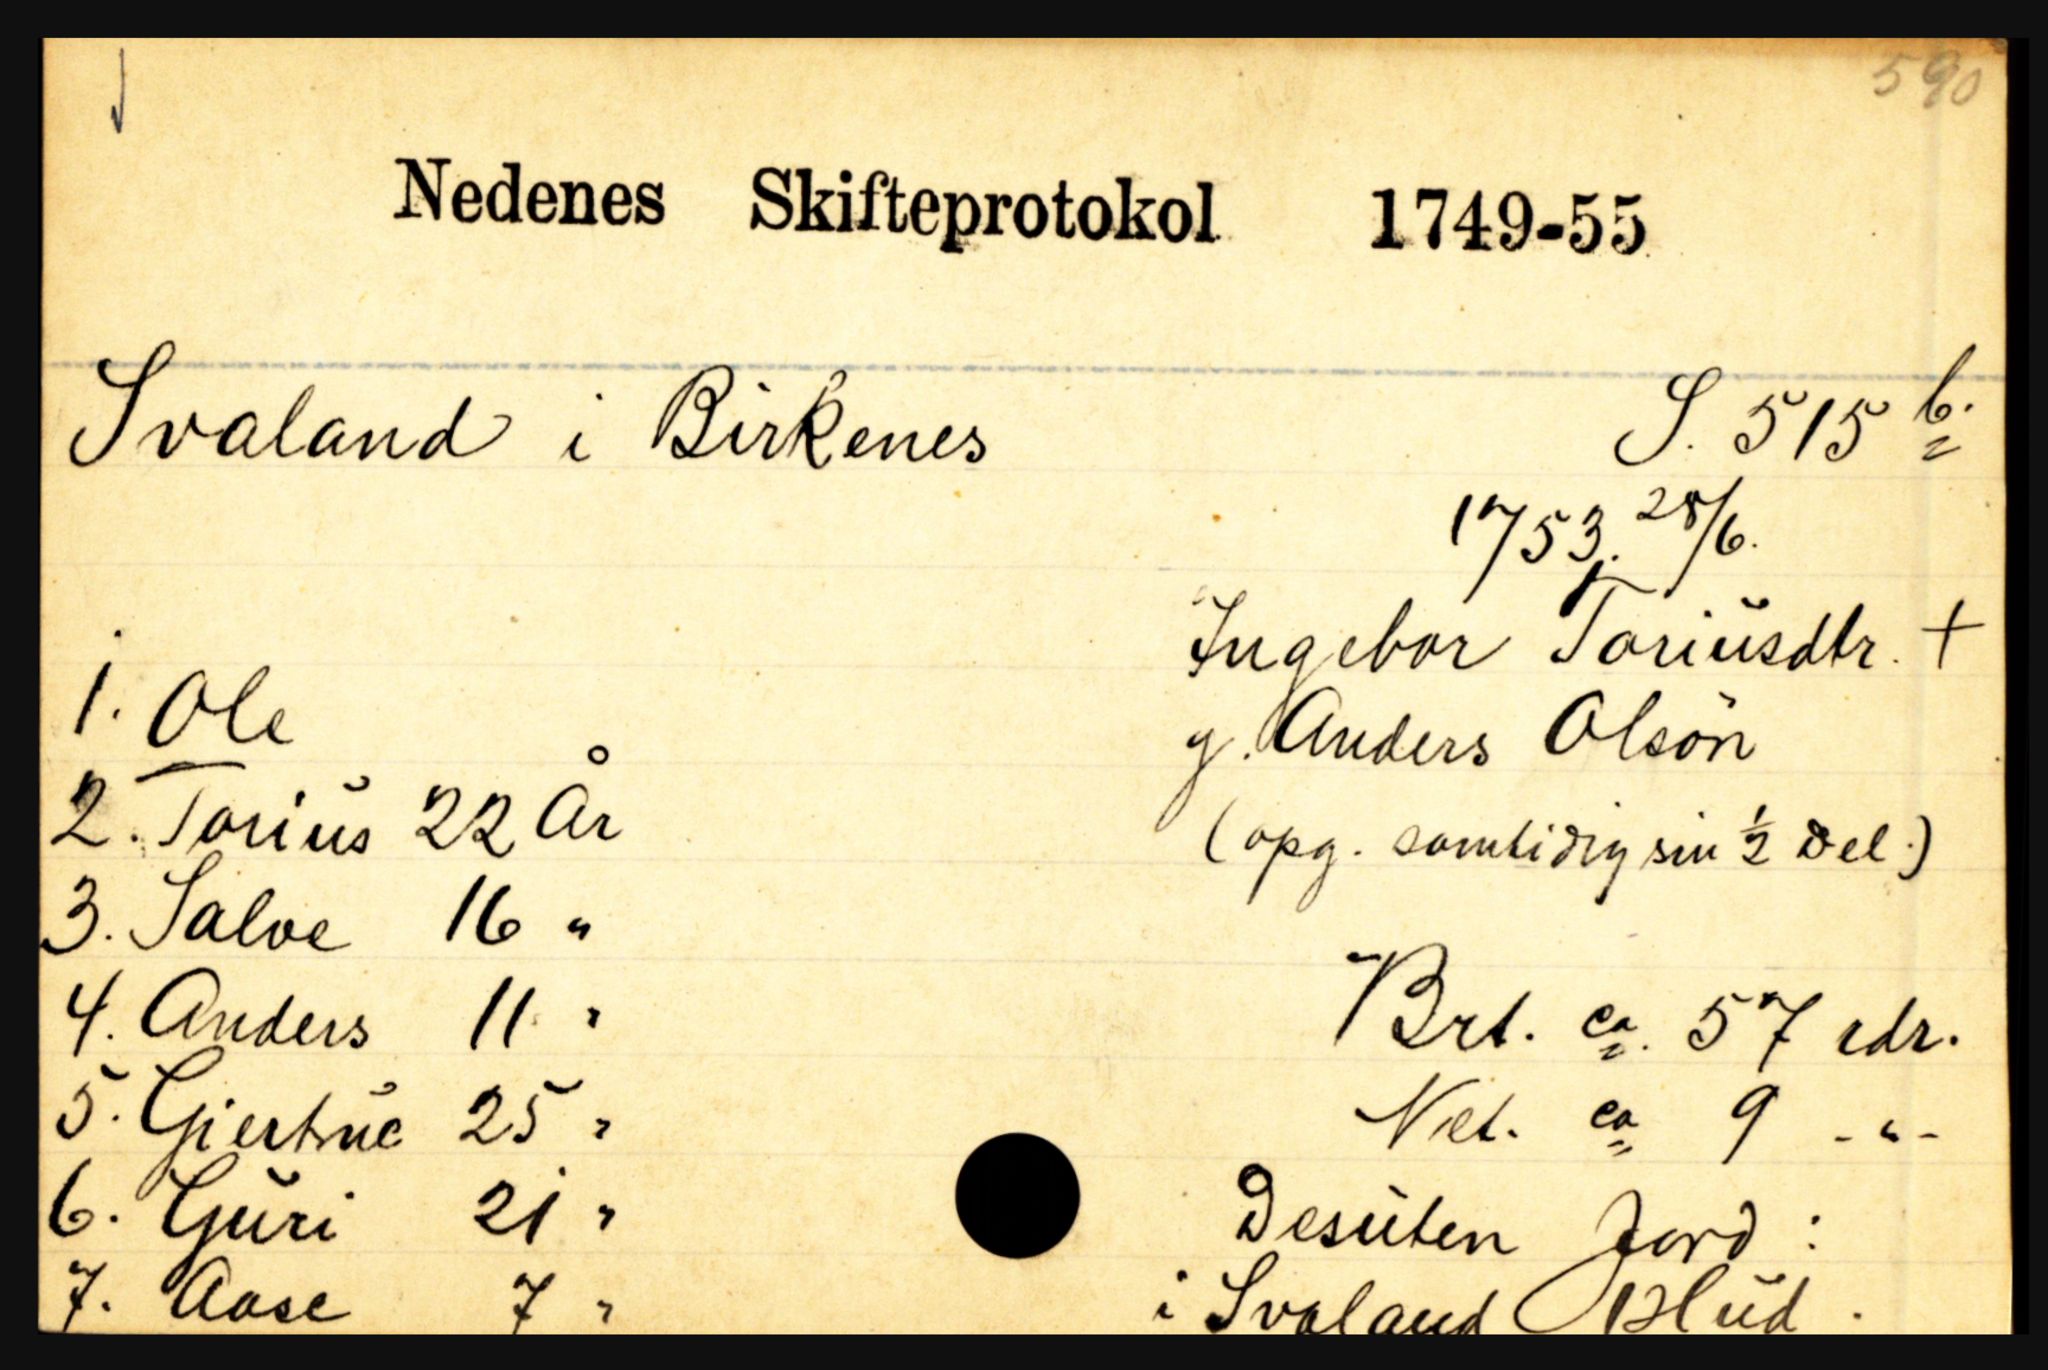 590
Nedenes Skifteprotokol 1749-55
Svaland i Birkenes
S. 515 b.
1753. 28/6.
Ingebor Toriusdtr. +
g. Anders Olsøn
(opg. samtidig sin 1/2 Del.)
1. Ole
2. Torius 22 År
3. Salve 16 "
4. Anders 11 "
5. Giertrue 25 "
6. Guri 21 "
7. Aase 7 "
Brt. ca. 57 rdr.
Net. ca 9 -"-
Desuten Jord:
i Svaland Hud.